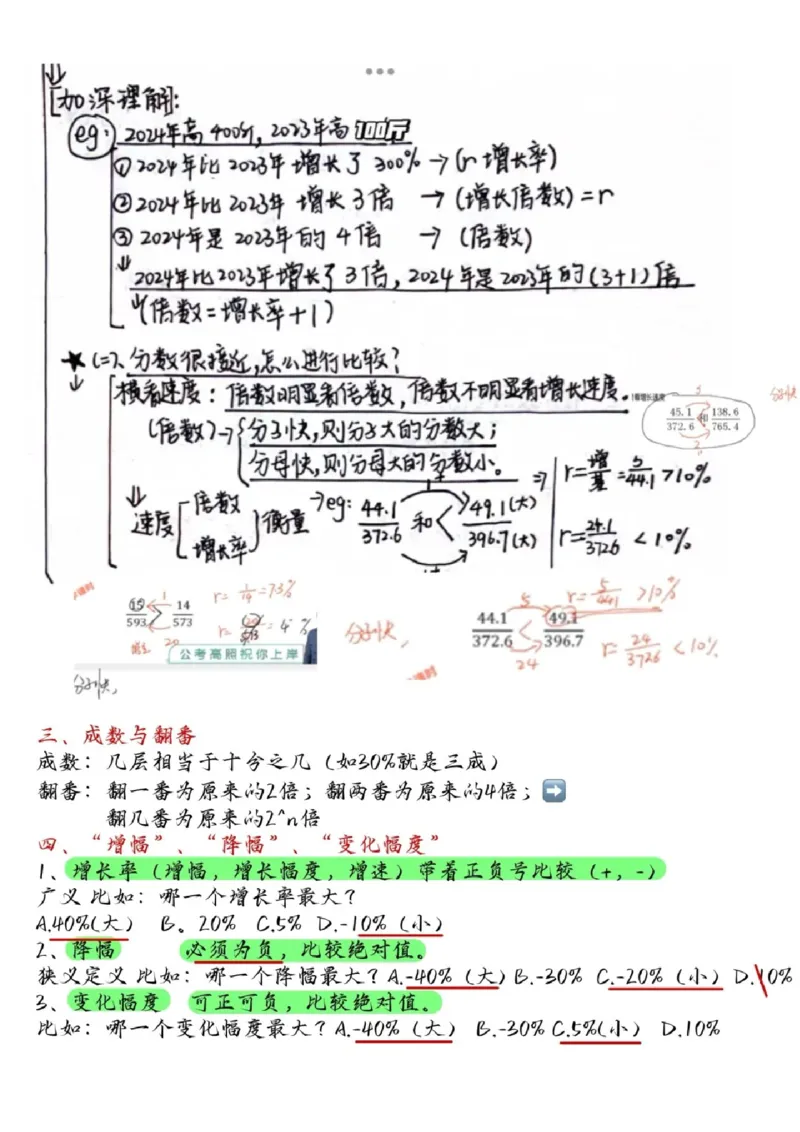 [加深理解]:
eg: 2024年高400斤, 2023年高100斤
① 2024年比2023年增长了300% → (r增长率)
② 2024年比2023年 增长3倍 → (增长倍数) = r
③ 2024年是2023年的4倍 → (倍数)
2024年比2023年增长了3倍, 2024年是2023年的(3+1)倍
(倍数=增长率+1)
★(二)、分数很接近,怎么进行比较?
横看速度: 倍数明显看倍数, 倍数不明显看增长速度。
看增长速度
3
45.1/372.6 和 138.6/765.4
2
分子快
(倍数)→ 分子快,则分子大的分数大;
分母快,则分母大的分数小。
⇒ r=增/基=5/44.1>10%
速度 倍数 增长率 衡量
→eg: 44.1/372.6 和< 49.1(大)/396.7(大)
r=24.1/372.6 < 10%
15/593 > 14/573
1
r=1/14=7.3%
20
r=20/573=4%
公考高照祝你上岸
分子快,
分子快,
5
44.1/372.6 < 49.1/396.7
24
r=5/441 >10%
r=24/3726 <10%
三、成数与翻番
成数：几层相当于十分之几（如30%就是三成）
翻番：翻一番为原来的2倍；翻两番为原来的4倍；➡
翻几番为原来的2^n倍
四、“增幅”、“降幅”、“变化幅度”
1、增长率（增幅，增长幅度，增速）带着正负号比较（+，-）
广义 比如：哪一个增长率最大？
A.40%(大） B。20% C.5% D.-10%（小）
2、降幅 必须为负，比较绝对值。
狭义定义 比如：哪一个降幅最大？A.-40%（大）B.-30% C.-20%（小）D.10%
3、变化幅度 可正可负，比较绝对值。
比如：哪一个变化幅度最大？A.-40%（大） B.-30% C.5%(小） D.10%